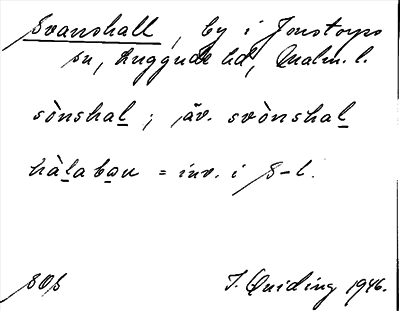 Svanshall, by i Jonstorps
sn, Luggude hd, Malm. l.
sònshal; äv. svònshal
hàlabọu = inv. i S-l.
SOS J. Quiding 1946.